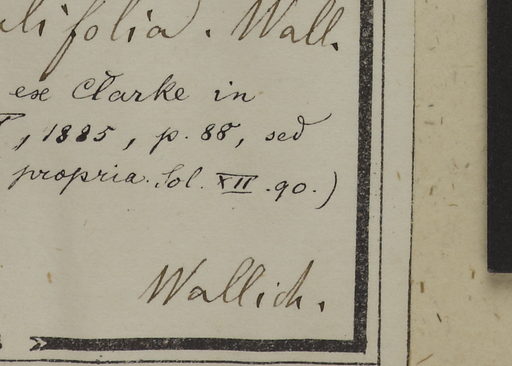 folia. Wall.
ex Clarke in
, 1885, p. 88, sed
propria. Sol. XII. 90.)
Wallich.
»